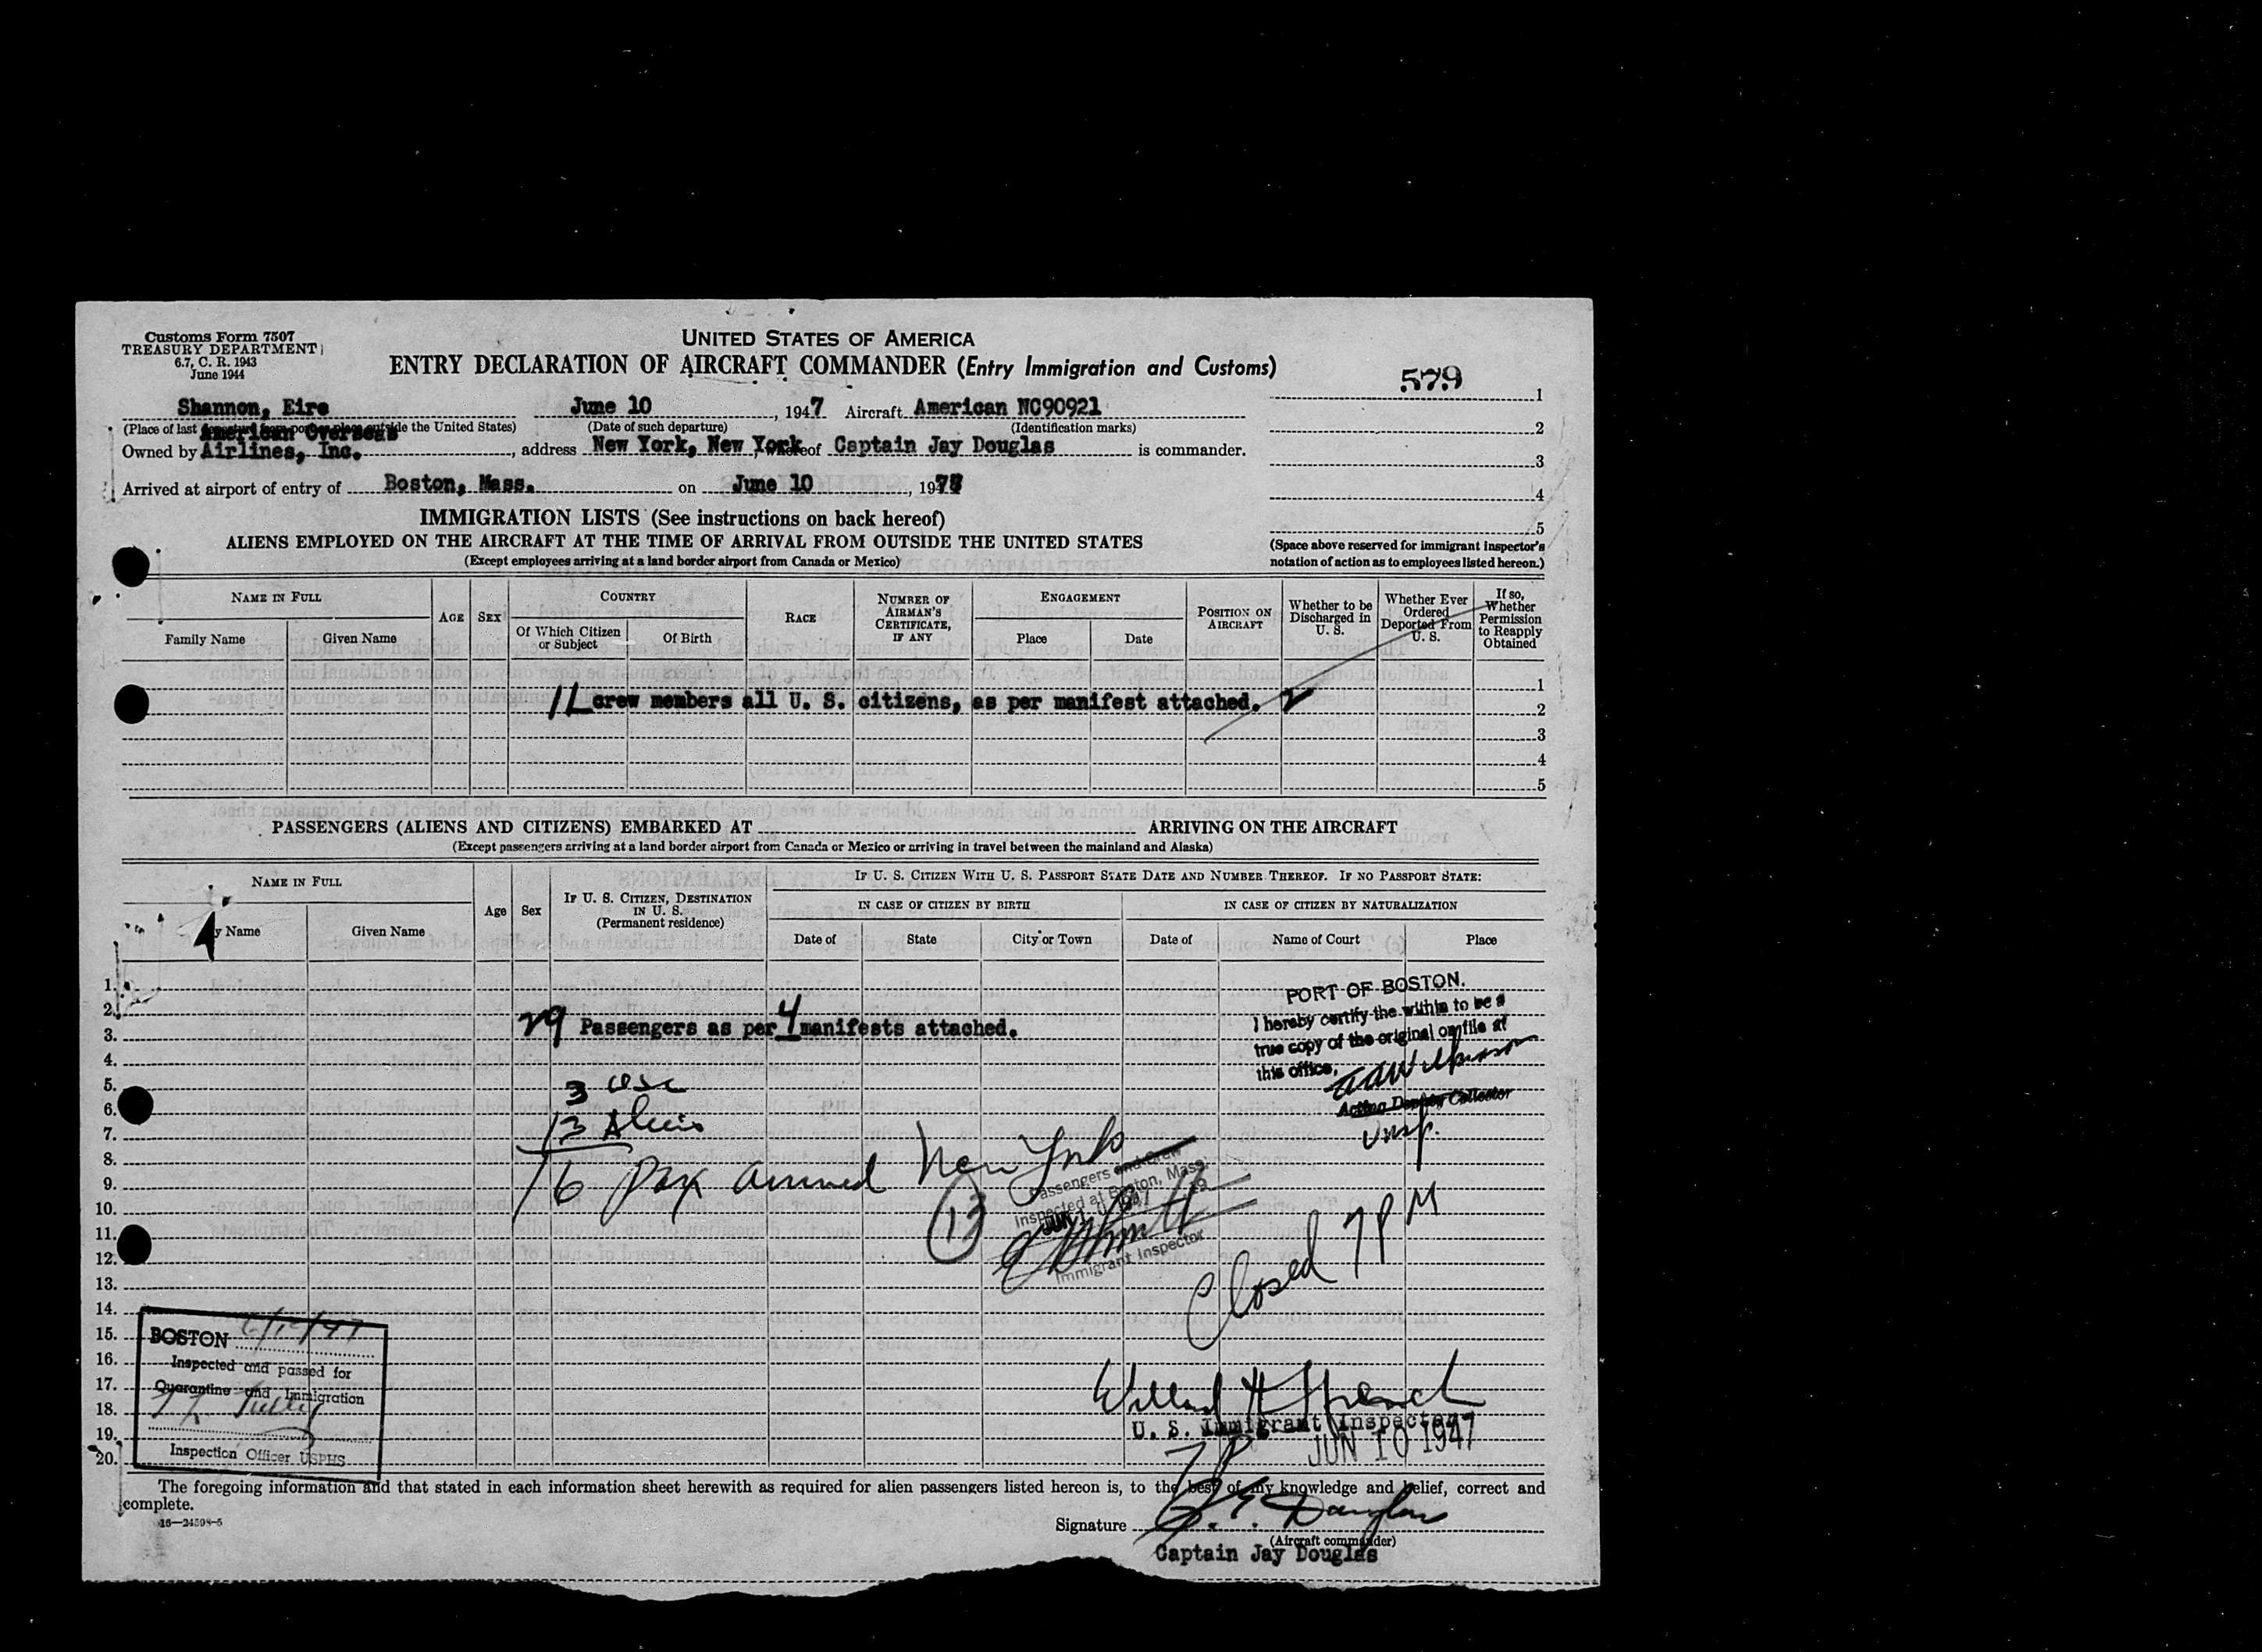 Customs Form 7507
TREASURY DEPARTMENT
6.7, C. R. 1943
June 1944
UNITED STATES OF AMERICA
ENTRY DECLARATION OF AIRCRAFT COMMANDER (Entry Immigration and Customs)
579
Shannon, Eire June 10, 1947 Aircraft American NC90921
(Place of last departure from port or place outside the United States) (Date of such departure) (Identification marks)
American Overseas
Owned by Airlines, Inc., address New York, New York whereof Captain Jay Douglas is commander.
Arrived at airport of entry of Boston, Mass. on June 10, 1947
1
2
3
4
5
IMMIGRATION LISTS (See instructions on back hereof)
ALIENS EMPLOYED ON THE AIRCRAFT AT THE TIME OF ARRIVAL FROM OUTSIDE THE UNITED STATES
(Except employees arriving at a land border airport from Canada or Mexico)
(Space above reserved for immigrant inspector's
notation of action as to employees listed hereon.)
NAME IN FULL
Family Name Given Name
AGE SEX
COUNTRY
Of Which Citizen or Subject Of Birth
RACE
NUMBER OF AIRMAN'S CERTIFICATE, IF ANY
ENGAGEMENT
Place Date
POSITION ON AIRCRAFT
Whether to be Discharged in U. S.
Whether Ever Ordered Deported From U. S.
If so, Whether Permission to Reapply Obtained
1
11 crew members all U. S. citizens, as per manifest attached.
2
3
4
5
PASSENGERS (ALIENS AND CITIZENS) EMBARKED AT ARRIVING ON THE AIRCRAFT
(Except passengers arriving at a land border airport from Canada or Mexico or arriving in travel between the mainland and Alaska)
NAME IN FULL
y Name Given Name
Age Sex
IF U. S. CITIZEN, DESTINATION IN U. S. (Permanent residence)
IF U. S. CITIZEN WITH U. S. PASSPORT STATE DATE AND NUMBER THEREOF. IF NO PASSPORT STATE:
IN CASE OF CITIZEN BY BIRTH IN CASE OF CITIZEN BY NATURALIZATION
Date of State City or Town Date of Name of Court Place
1.
2.
3.
4.
5.
6.
7.
8.
9.
10.
11.
12.
13.
14.
15.
16.
17.
18.
19.
20.
29 Passengers as per 4 manifests attached.
3 USC
13 Aliens
16 Pax arrived New York
13
PORT OF BOSTON.
I hereby certify the within to be a
true copy of the original on file at
this office,
Acting Deputy Collector
Insp.
Passengers and Crew
Inspected at Boston, Mass.
JUN 10 1947
Immigrant Inspector
Closed 7 PM
BOSTON 6/10/47
Inspected and passed for
Quarantine and Immigration
Inspection Officer USPHS
Willard H French
U. S. Immigrant Inspector
JUN 10 1947
The foregoing information and that stated in each information sheet herewith as required for alien passengers listed hereon is, to the best of my knowledge and belief, correct and
complete.
16—24598-5
Signature J. E. Douglas
(Aircraft commander)
Captain Jay Douglas